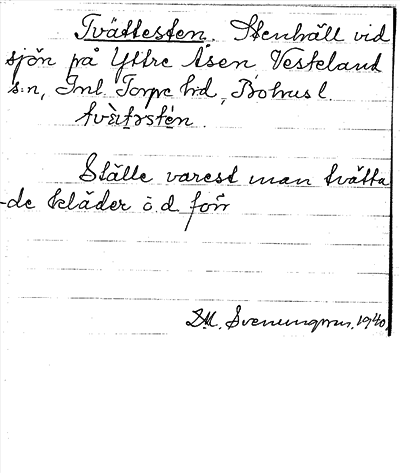 Tvättesten. Stenhäll vid
sjön på Yttre Åsen, Vesteland
s:n, Inl. Torpe hd, Bohusl.
Ställe varest man tvätta
-de kläder o.d. förr
D.M. Svenungsson, 1940.